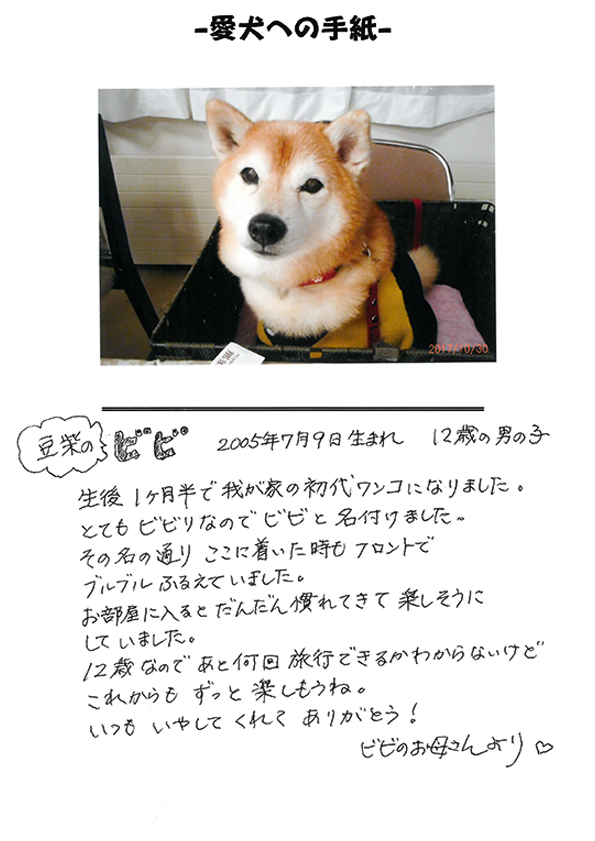 -愛犬への手紙-
2017/10/30
豆柴の ビビ 2005年7月9日生まれ 12歳の男の子
生後1ヶ月半で我が家の初代ワンコになりました。
とてもビビりなのでビビと名付けました。
その名の通り ここに着いた時もフロントで
ブルブルふるえていました。
お部屋に入るとだんだん慣れてきて楽しそうに
していました。
12歳なのであと何回旅行できるかわからないけど
これからもずっと楽しもうね。
いつもいやしてくれてありがとう!
ビビのお母さんより♡